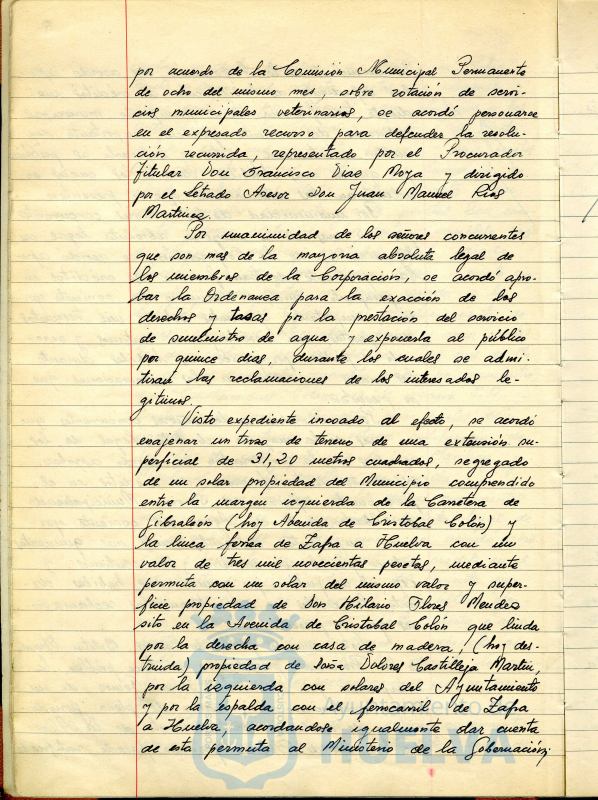 por acuerdo de la Comisión Municipal Permanente
de ocho del mismo mes, sobre rotación de servi-
cios municipales veterinarios, se acordó personarse
en el expresado recurso para defender la resolu-
ción recurrida, representado por el Procurador
titular Don Francisco Diaz Moya y dirigido
por el Letrado Asesor Don Juan Manuel Rios
Martinez.
Por unanimidad de los señores concurrentes
que son mas de la mayoria absoluta legal de
los miembros de la Corporación, se acordó apro-
bar la Ordenanza para la exacción de los
derechos y tasas por la prestación del servicio
de suministro de agua y exponerla al público
por quince dias, durante los cuales se admi-
tiran las reclamaciones de los interesados le-
gitimos.
Visto expediente incoado al efecto, se acordó
enajenar un trozo de terreno de una extensión su-
perficial de 31,20 metros cuadrados, segregado
de un solar propiedad del Municipio comprendido
entre la margen izquierda de la Carretera de
Gibraleón (hoy Avenida de Cristobal Colón) y
la linea ferrea de Zafra a Huelva con un
valor de tres mil novecientas pesetas, mediante
permuta con un solar del mismo valor y super-
ficie propiedad de Don Hilario Flores Mendez
sito en la Avenida de Cristobal Colón que linda
por la derecha con casa de madera, (hoy des-
truida) propiedad de Doña Dolores Castilleja Martin,
por la izquierda con solares del Ayuntamiento
y por la espalda con el ferrocarril de Zafra
a Huelva, acordandose igualmente dar cuenta
de esta permuta al Ministerio de la Gobernación;
HUELVA